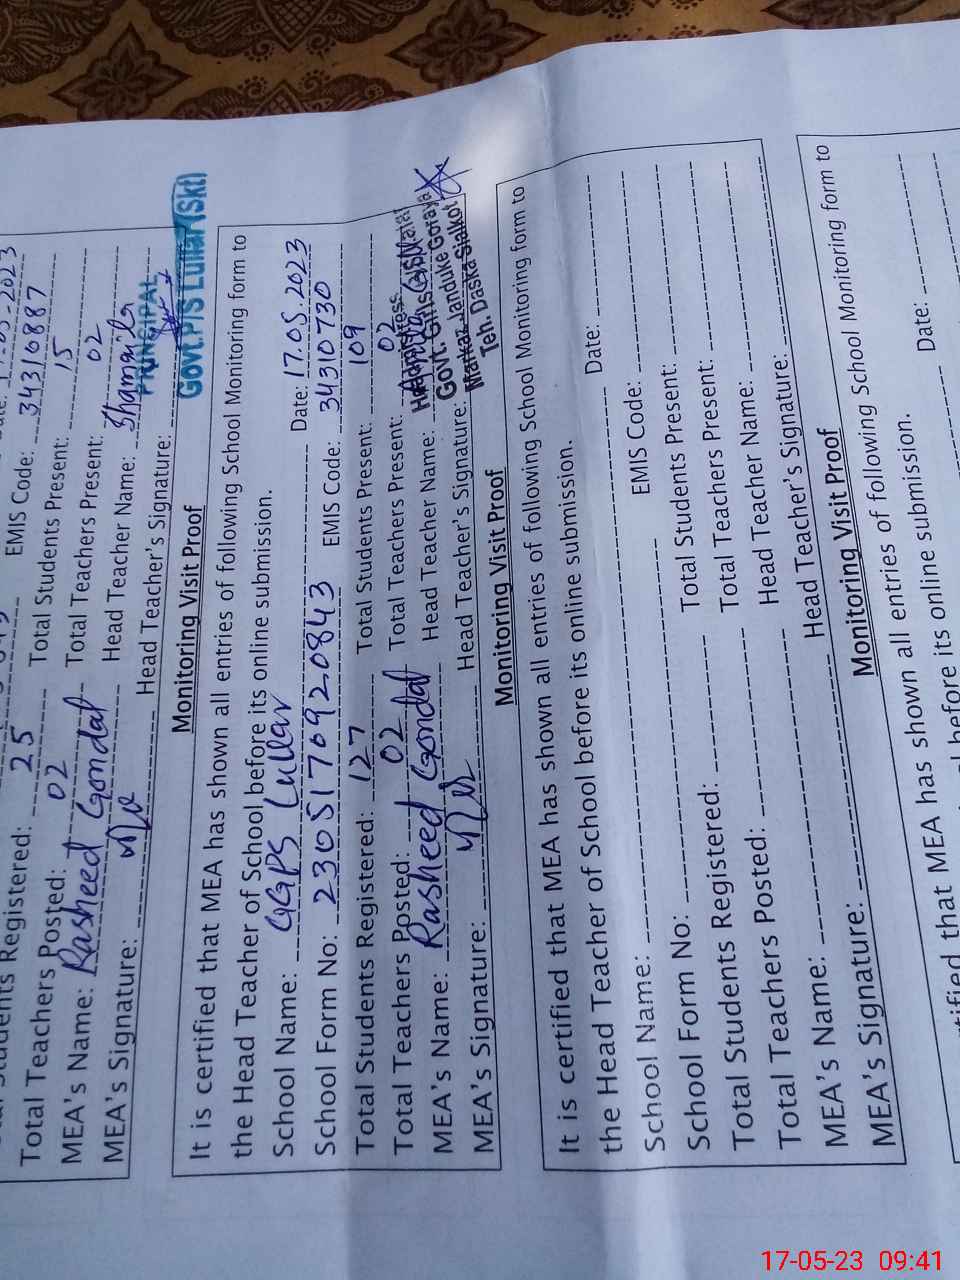 Students Registered: 25 EMIS Code: 34310887
Total Teachers Posted: 02 Total Students Present: 15
MEA's Name: Rasheed Gondal Total Teachers Present: 02
MEA's Signature: Head Teacher Name: Shamaila
Head Teacher's Signature:
PRINCIPAL
Govt. P/S Lullar (Skt)
Monitoring Visit Proof
It is certified that MEA has shown all entries of following School Monitoring form to
the Head Teacher of School before its online submission.
School Name: GGPS Lullar Date: 17.05.2023
School Form No: 2305170920843 EMIS Code: 34310730
Total Students Registered: 127 Total Students Present: 109
Total Teachers Posted: 02 Total Teachers Present: 02
MEA's Name: Rasheed Gondal Head Teacher Name:
MEA's Signature: Head Teacher's Signature:
Headmistress
Govt. Girls
Markaz Janduke Goraya
Teh. Daska Sialkot
Monitoring Visit Proof
It is certified that MEA has shown all entries of following School Monitoring form to
the Head Teacher of School before its online submission.
School Name: Date:
School Form No: EMIS Code:
Total Students Registered: Total Students Present:
Total Teachers Posted: Total Teachers Present:
MEA's Name: Head Teacher Name:
MEA's Signature: Head Teacher's Signature:
Monitoring Visit Proof
of following School Monitoring form to
tified that MEA has shown all entries
before its online submission.
Date:
17-05-23 09:41